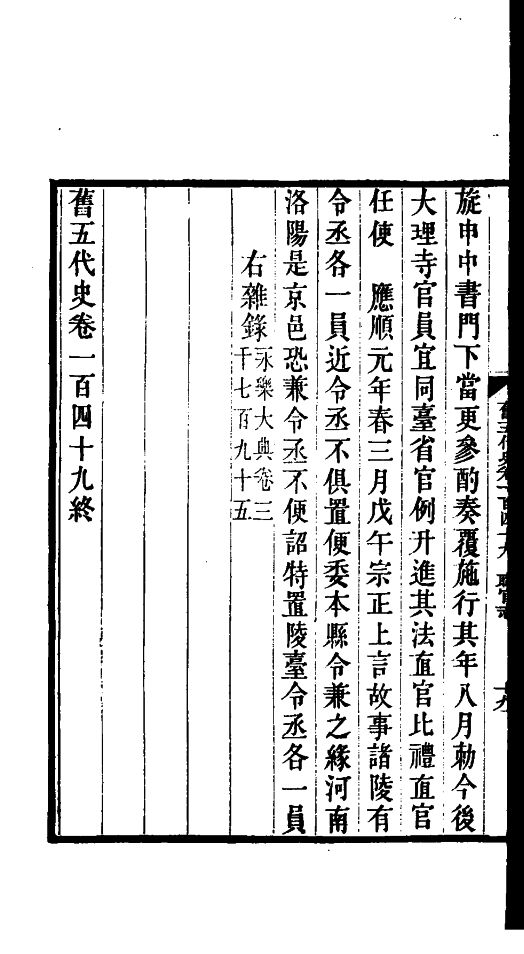 旋申中書門下當更參酌奏覆施行其年八月勅今後
大理寺官員宜同臺省官例升進其法直官比禮直官
任使　應順元年春三月戊午宗正上言故事諸陵有
令丞各一員近令丞不俱置便委本縣令兼之緣河南
洛陽是京邑恐兼令丞不便詔特置陵臺令丞各一員
右雜錄永樂大典卷三
千七百九十五
舊五代史卷一百四十九終
舊五代史卷一百四十九　職官志